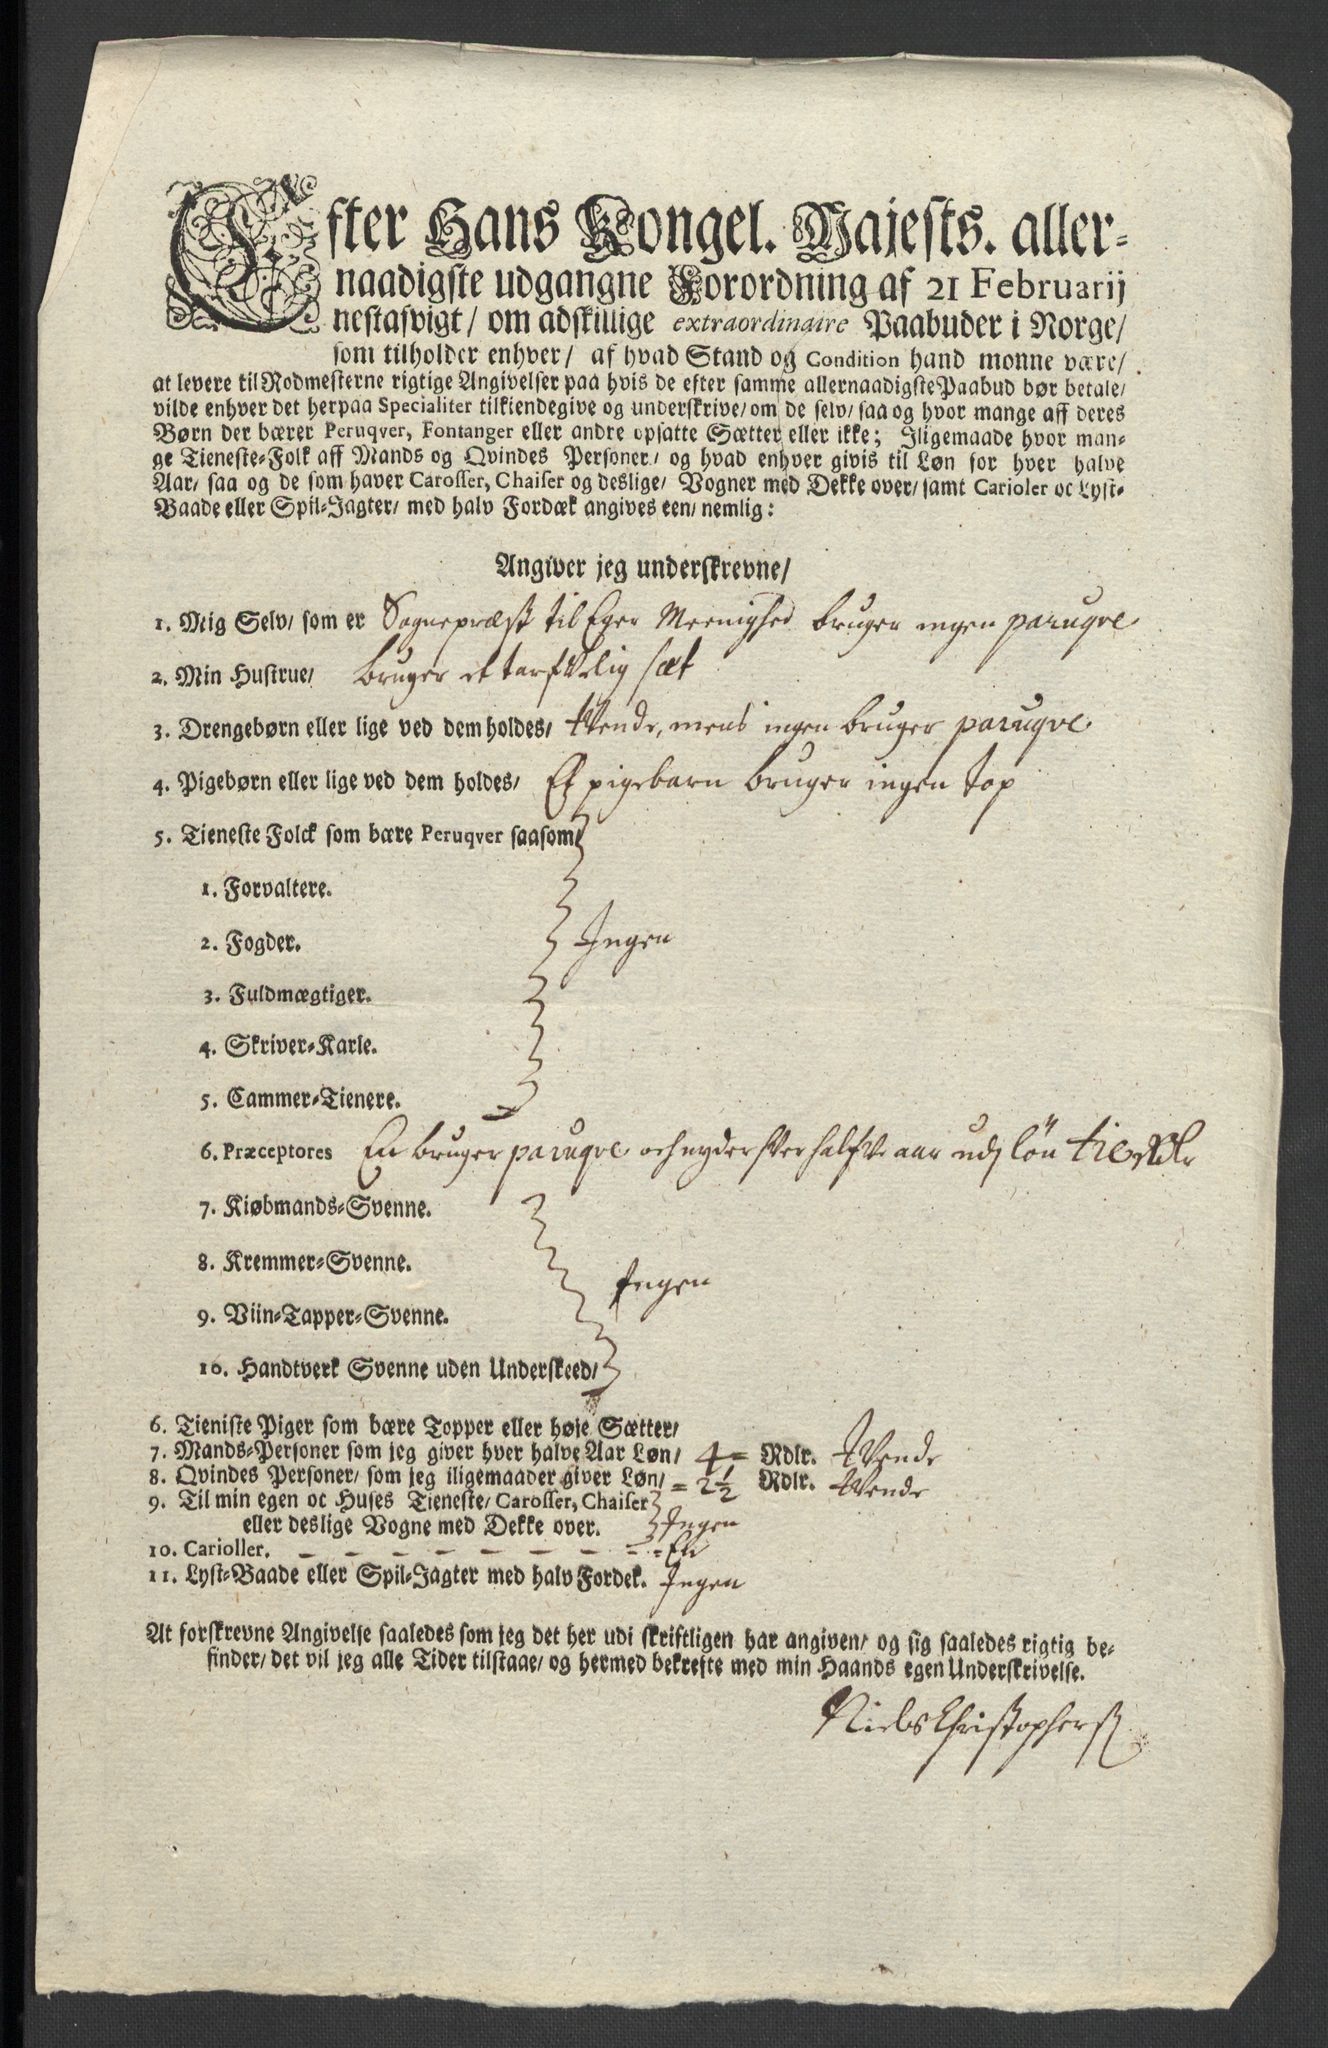 Efter Hans Kongel. Majests. aller-
naadigste udgangne Forordning af 21 Februarij
nestafvigt/ om adskillige extraordinaire Paabuder i Norge/
som tilholder enhver/ af hvad Stand og Condition hand monne være/
at levere til Rodmesterne rigtige Angivelser paa hvis de efter samme allernaadigste Paabud bør betale/
vilde enhver det herpaa Specialiter tilkiendegive og underskrive/ om de selv/ saa og hvor mange aff deres
Børn der bærer Peruqver, Fontanger eller andre opsatte Sætter eller ikke; Iligemaade hvor man-
ge Tieneste-Folk aff Mands og Qvindes Personer/ og hvad enhver givis til Løn for hver halve
Aar/ saa og de som haver Carosser, Chaiser og deslige/ Vogner med Dekke over/ samt Carioler oc Lyst-
Baade eller Spil-Jagter/ med halv Fordæk angives een/ nemlig:
Angiver jeg underskrevne/
1. Mig Selv/ som er Sognepræst til Eger Meenighed bruger ingen paruqve
2. Min Hustrue/ bruger et tarfvelig sæt
3. Drengebørn eller lige ved dem holdes/ tvende, mens ingen bruger paruqve
4. Pigebørn eller lige ved dem holdes/ Et pigebarn bruger ingen top
5. Tieneste Folck som bære Peruqver saasom/
1. Forvaltere.
2. Fogder. Ingen
3. Fuldmægtiger.
4. Skriver-Karle.
5. Cammer-Tienere.
6. Præceptores En bruger paruqve och nyder hver halfve aar udj løn tie Rdlr
7. Kiøbmands-Svenne.
8. Kremmer-Svenne. Ingen
9. Viin-Tapper-Svenne.
10. Handtverk Svenne uden Underskeed/
6. Tieniste Piger som bære Topper eller høje Sætter/
7. Mands-Personer som jeg giver hver halve Aar Løn/ 4 = Rdlr. Tvende
8. Qvindes Personer/ som jeg iligemaader giver Løn/ = 2 1/2 Rdlr. tvende
9. Til min egen oc Huses Tieneste/ Carosser, Chaiser
eller deslige Vogne med Dekke over. Ingen
10. Carioller. - - - - - - - - = En
11. Lyst-Baade eller Spil-Jagter med halv Fordek. Ingen
At forskrevne Angivelse saaledes som jeg det her udi skriftligen har angiven/ og sig saaledes rigtig be-
finder/ det vil jeg alle Tider tilstaae/ og hermed bekrefte med min Haands egen Underskrivelse.
Niels Christophersß